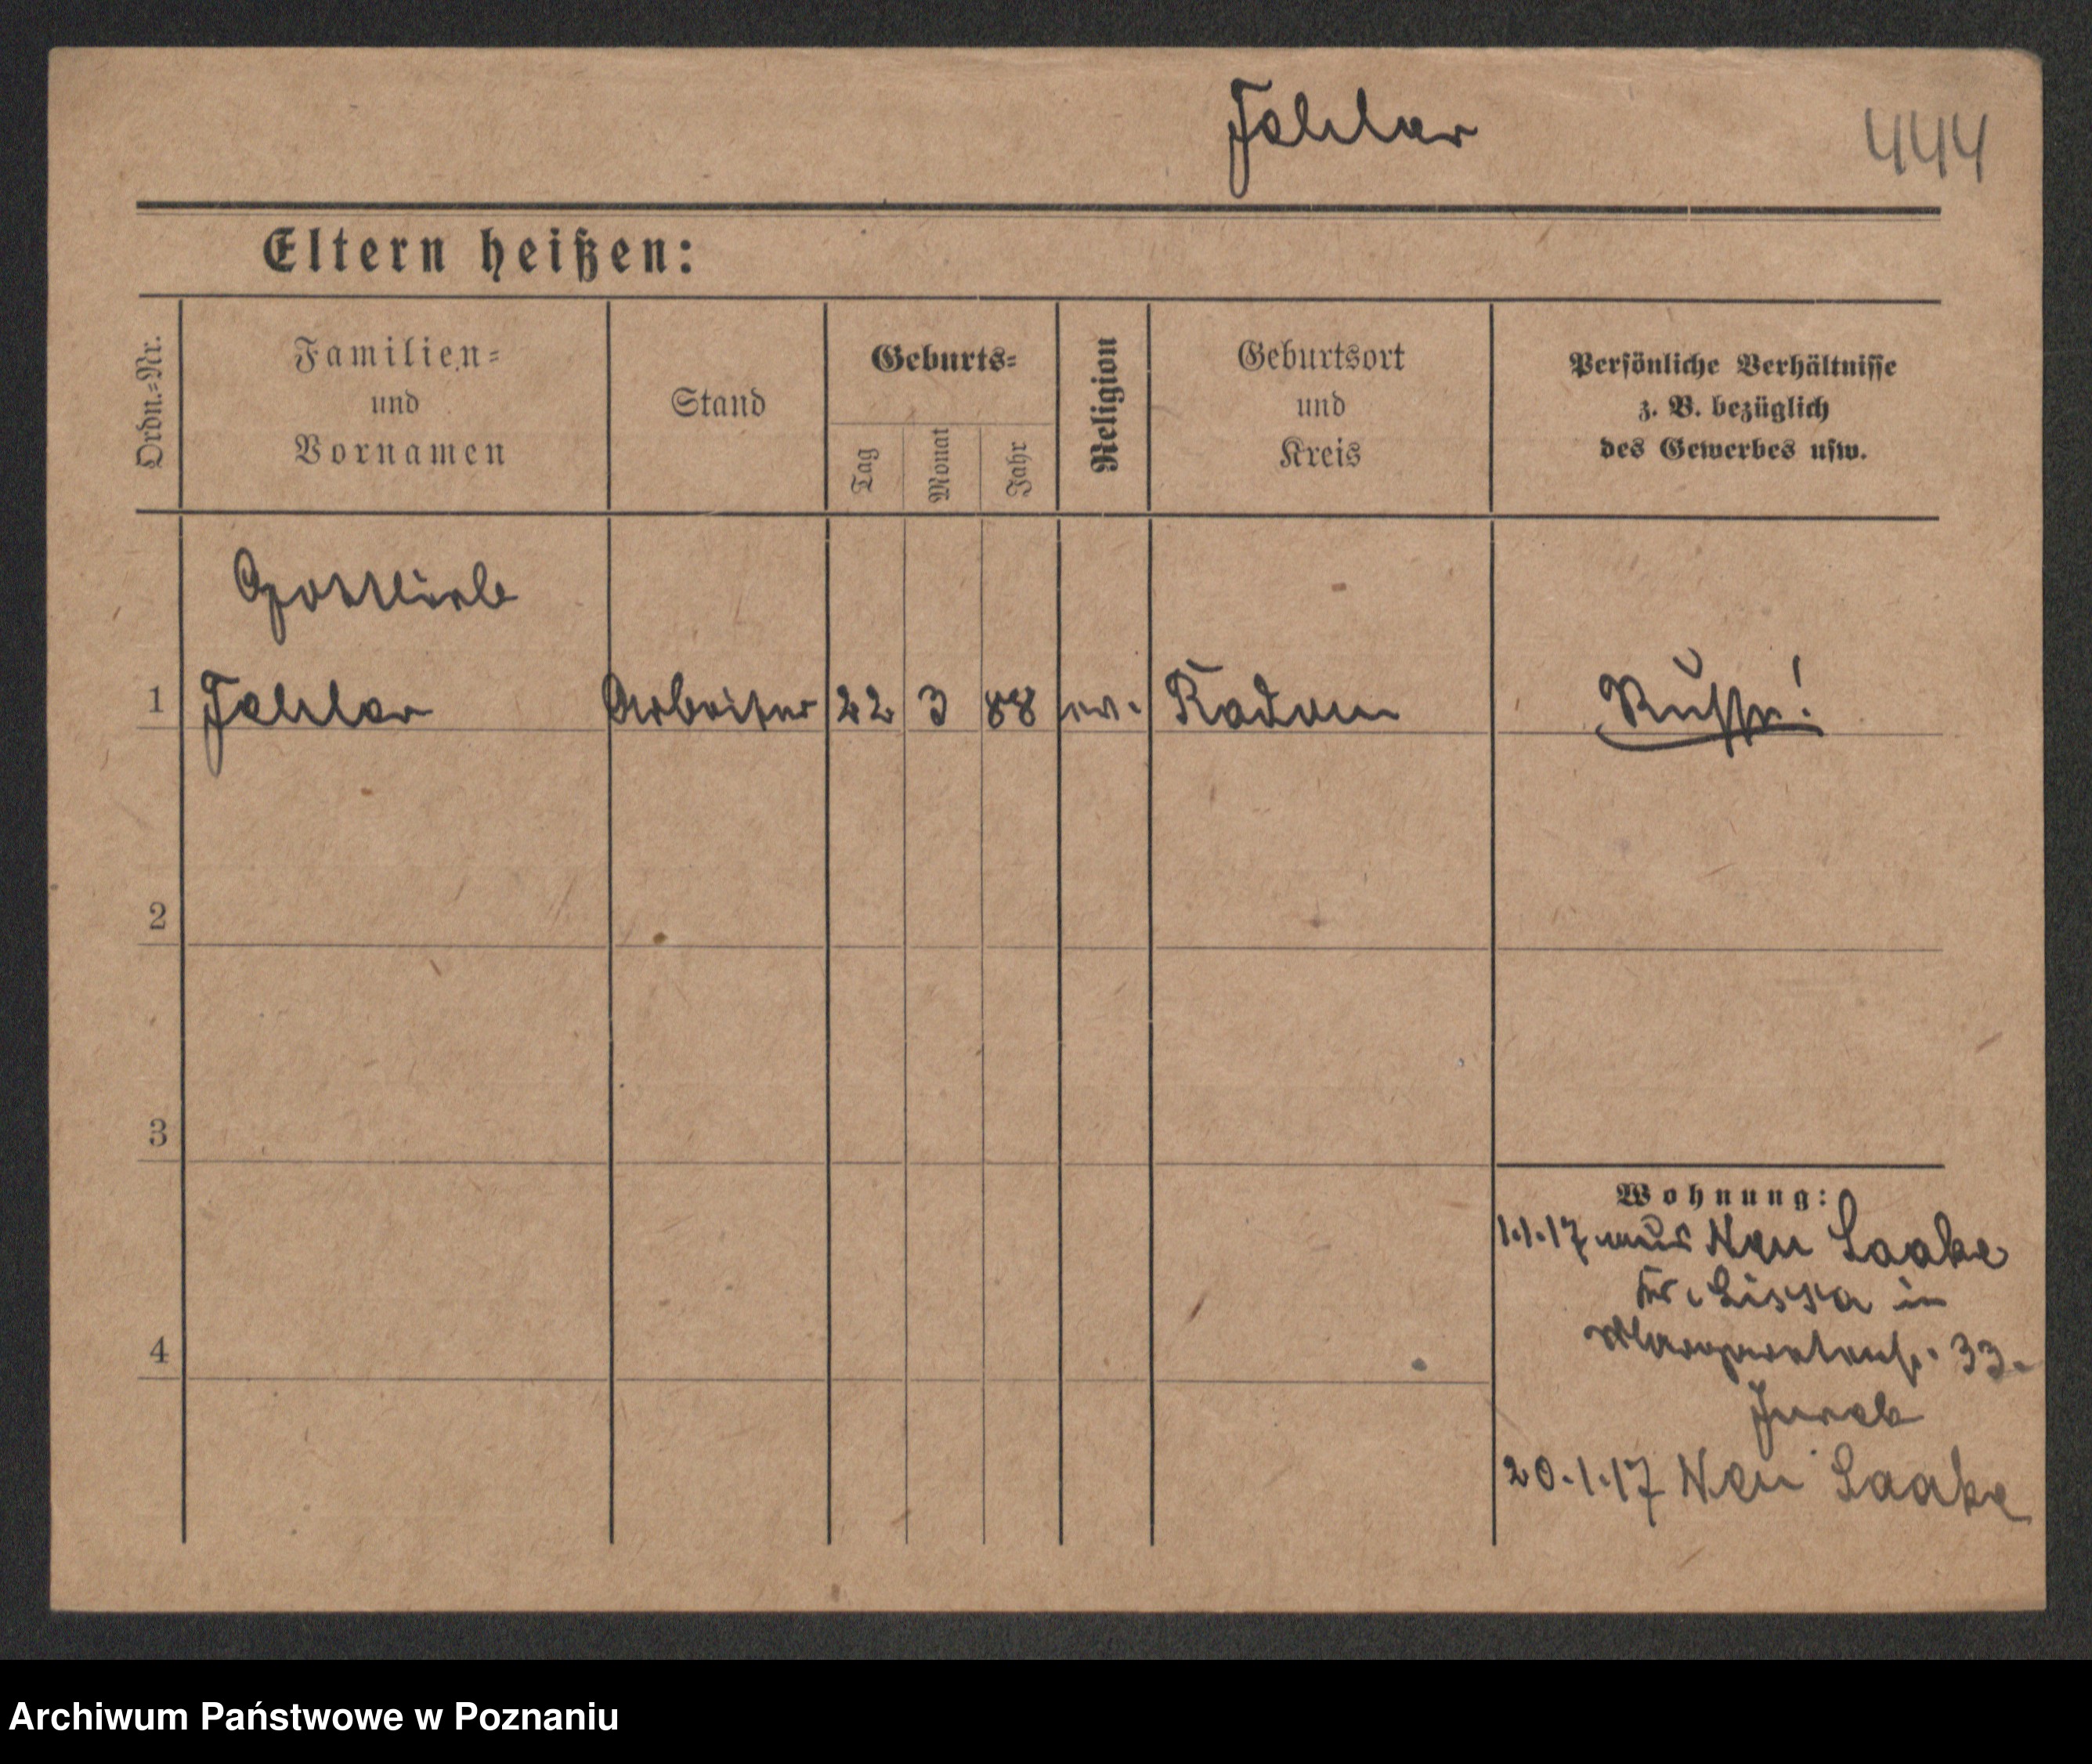 Fehlar
444
Eltern heißen:
Ordn.=Nr.
Familien=
und
Vornamen
Stand
Geburts=
Tag
Monat
Jahr
Religion
Geburtsort
und
Kreis
Persönliche Verhältnisse
z. B. bezüglich
des Gewerbes usw.
Gottlieb
1 Arbeiter 22 3 88 ev. Radom Russe!
2
3
4
Wohnung:
1.1.17 aus Neu Laake
Kr. Lissa in
Margaretenstr. 33.
20.1.17 Neu Laake
Archiwum Państwowe w Poznaniu